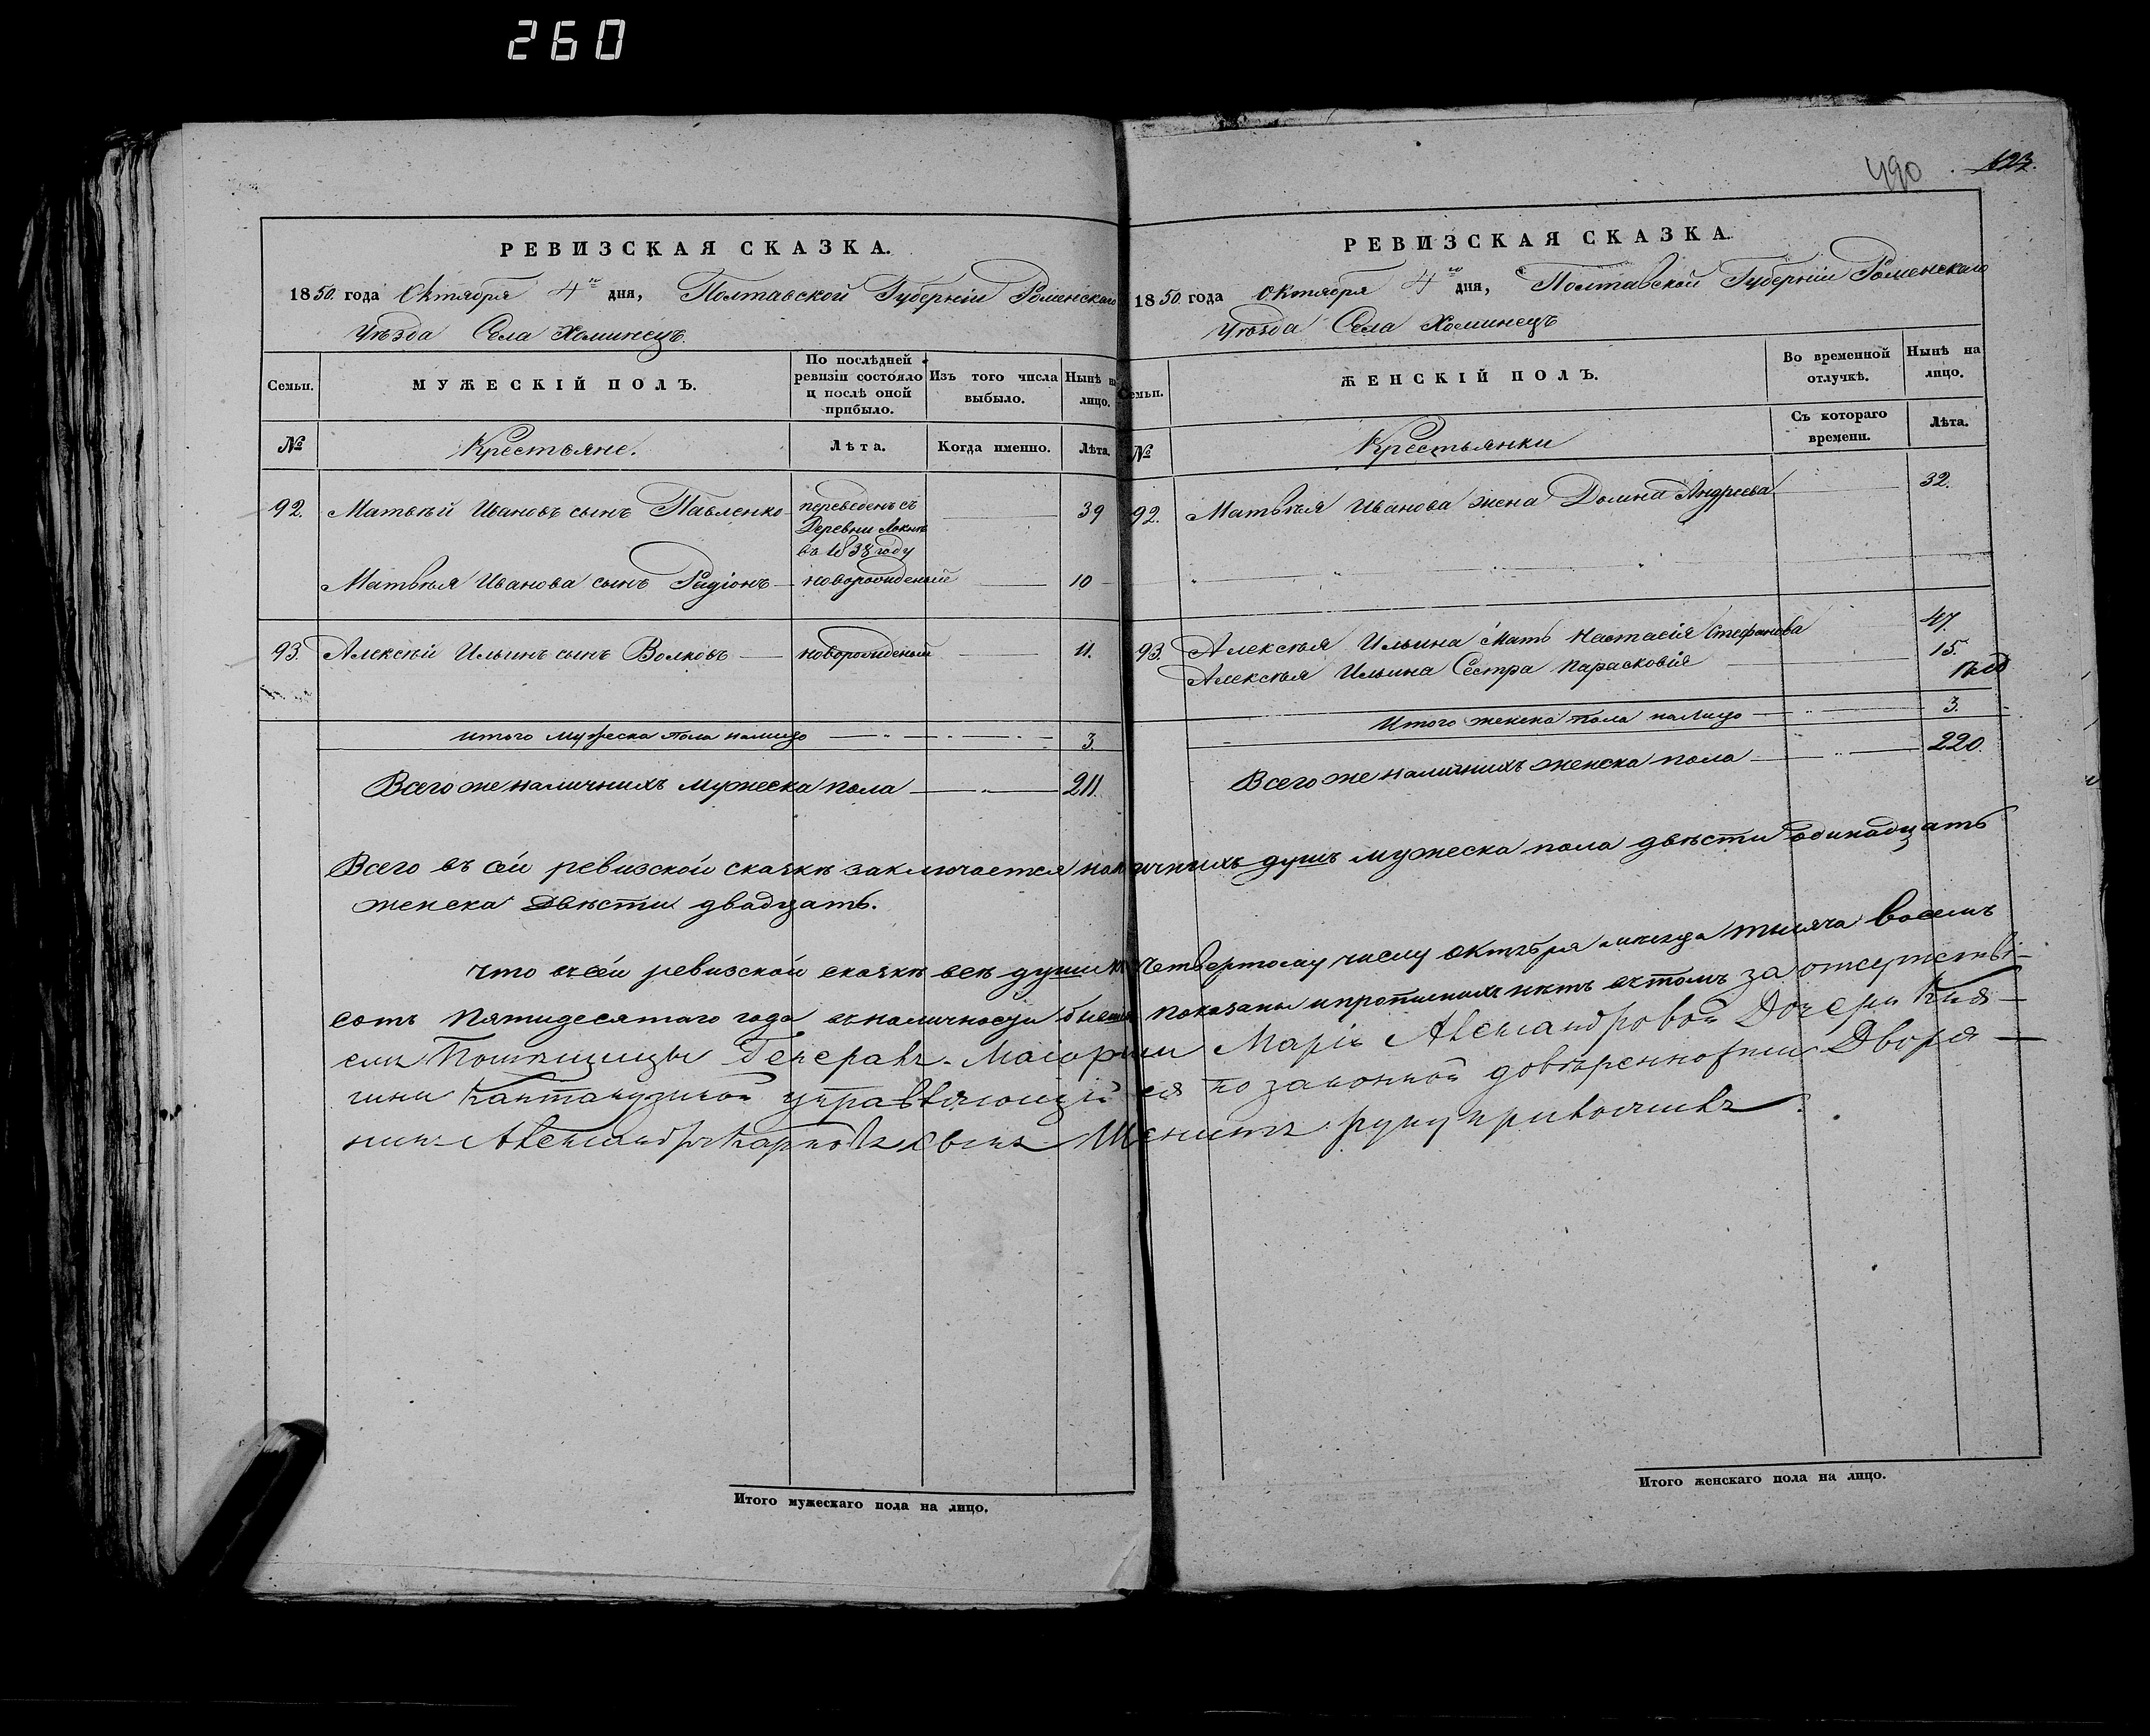 260
490 123.
РЕВИЗСКАЯ СКАЗКА.
1850. года Октября 4го дня, Полтавской Губерніи Роменскаго
Уѣзда Села Хоминецъ.
Семьи.
МУЖЕСКІЙ ПОЛЪ.
По послѣдней ревизіи состояло и послѣ оной прибыло.
Изъ того числа выбыло.
Нынѣ на лицо.
№
Крестьяне.
Лѣта.
Когда именно.
Лѣта.
92. Матвѣй Ивановъ сынъ Павленко переведенъ съ 39
Деревни
въ 1838 году
Матвѣя Иванова сынъ Радіонъ новорожденый 10
93. Алексѣй Ильинъ сынъ Волковъ новорожденый 11.
Итого мужеска пола налицо 3.
Всего же наличныхъ мужеска пола 211.
РЕВИЗСКАЯ СКАЗКА.
1850. года Октября 4го дня, Полтавской Губерніи Роменскаго
Уѣзда Села Хоминецъ
Семьи.
ЖЕНСКІЙ ПОЛЪ.
Во временной отлучкѣ.
Нынѣ на лицо.
№
Крестьянки
Съ котораго времени.
Лѣта.
92. Матвѣя Иванова жена Домна Андреева 32.
93. Алексѣя Ильина Мать Настасія Стефанова 47.
Алексѣя Ильина Сестра Парасковія 15.
Итого женска пола налицо 3.
Всего же наличныхъ женска пола 220.
Всего въ сей ревизской сказкѣ заключается наличныхъ душъ мужеска пола двѣсти одинадцать
женска двѣсти двадцать.
Что въ сей ревизской сказкѣ всѣ души къ четвертому числу октября мѣсяца тысяча восемъ
сотъ пятидесятаго года въ наличносци бывшія показаны и прописныхъ нѣтъ въ томъ за отсутстві-
емъ Помѣщицы Генералъ-Маіорши Маріи Александровой Дочери Кня-
гини Кантакузиной управляющій ея по законной довѣренности Дворя-
нинъ Александръ сынъ руку приложилъ.
Итого мужескаго пола на лицо.
Итого женскаго пола на лицо.